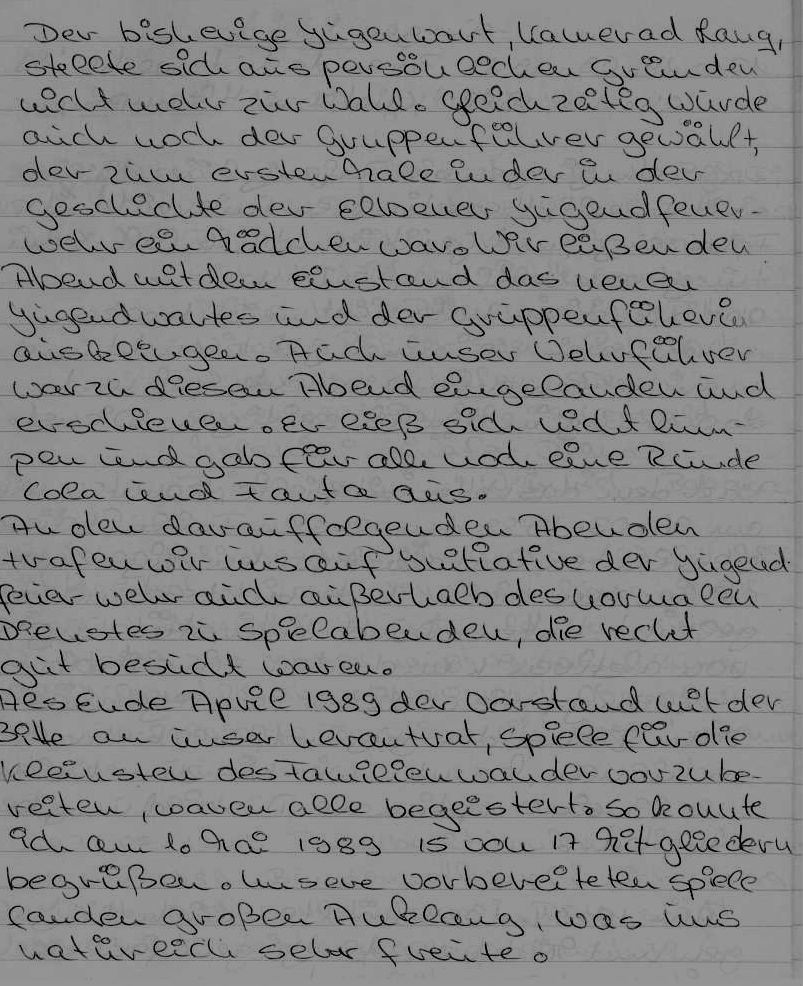 Der bisherige Jugenwart, Kamerad Lang,
stellte sich aus persönlichen Gründen
nicht mehr zur Wahl. Gleichzeitig wurde
auch noch der Gruppenführer gewählt,
der zum ersten Male in der in der
Geschichte der Elbener Jugendfeuer-
wehr ein Mädchen war. Wir ließen den
Abend mit dem Einstand das neuen
Jugendwartes und der Gruppenfüherin
ausklingen. Auch unser Wehrführer
war zu diesen Abend eingelanden und
erschienen. Er ließ sich nicht lum-
pen und gab für alle noch eine Runde
Cola und Fanta aus.
An den darauffolgenden Abenden
trafen wir uns auf Initiative der Jugend
feuerwehr auch außerhalb des normalen
Dienstes zu Spielabenden, die recht
gut besucht waren.
Als Ende April 1989 der Vorstand mit der
Bitte an unser herantrat, Spiele für die
Kleinsten des Familienwander vorzube-
reiten, waren alle begeistert. So konnte
ich am 1. Mai 1989 15 von 17 Mitgliedern
begrüßen. Unsere vorbereiteten Spiele
fanden großen Anklang, was uns
natürlich sehr freute.